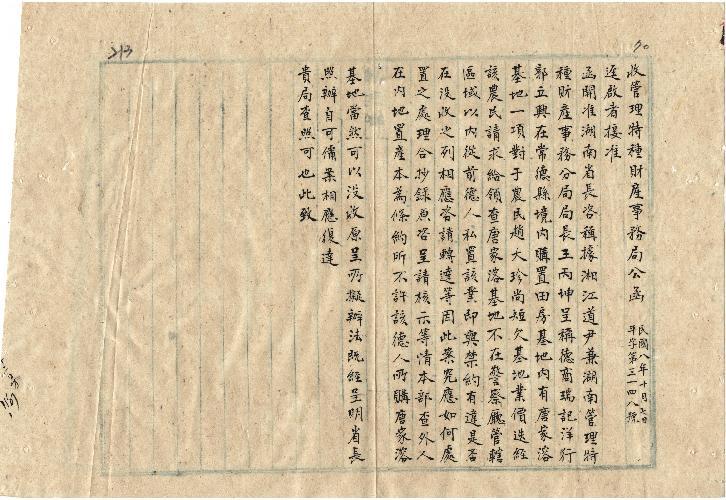 70
213
收管理特種財產事務局公函
民國八年十月七日
平字第三一四八號
逕啟者接准
函開准湖南省長咨稱據湘江道尹兼湖南管理特
種財產事務分局局長王丙坤呈稱德商瑞記洋行
郭立興在常德縣境內購置田房基地內有唐家溶
基地一項對于農民趙大珍尚短欠基地業價迭經
該農民請求給領查唐家溶基地不在警察廳管轄
區域以內從前德人私置該業即與禁約有違是否
在沒收之列相應咨請轉達等因此案究應如何處
置之處理合抄錄原咨呈請核示等情本部查外人
在內地置產本為條約所不許該德人所購唐家溶
基地當然可以沒收原呈所擬辦法既經呈明省長
照辦自可備案相應復達
貴局查照可也此致